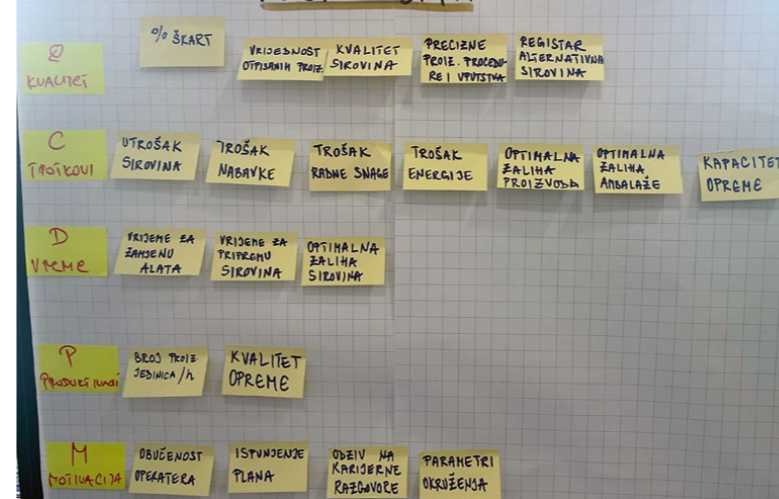 Q
KVALITET
% ŠKART
VRIJEDNOST
OTPISANIH PROIZ.
KVALITET
SIROVINA
PRECIZNE
PROIZ. PROCEDU-
RE I UPUTSTVA
REGISTAR
ALTERNATIVNA
SIROVINA
C
TROŠKOVI
UTROŠAK
SIROVINA
TROŠAK
NABAVKE
TROŠAK
RADNE SNAGE
TROŠAK
ENERGIJE
OPTIMALNA
ZALIHA
PROIZVODA
OPTIMALNA
ZALIHA
AMBALAŽE
KAPACITET
OPREME
D
VREME
VRIJEME ZA
ZAMJENU
ALATA
VRIJEME ZA
PRIPREMU
SIROVINA
OPTIMALNA
ZALIHA
SIROVINA
P
BROJ PROIZ
JEDINICA/h
KVALITET
OPREME
M
MOTIVACIJA
OBUČENOST
OPERATERA
ISPUNJENJE
PLANA
ODZIV NA
KARIJERNE
RAZGOVORE
PARAMETRI
OKRUŽENJA